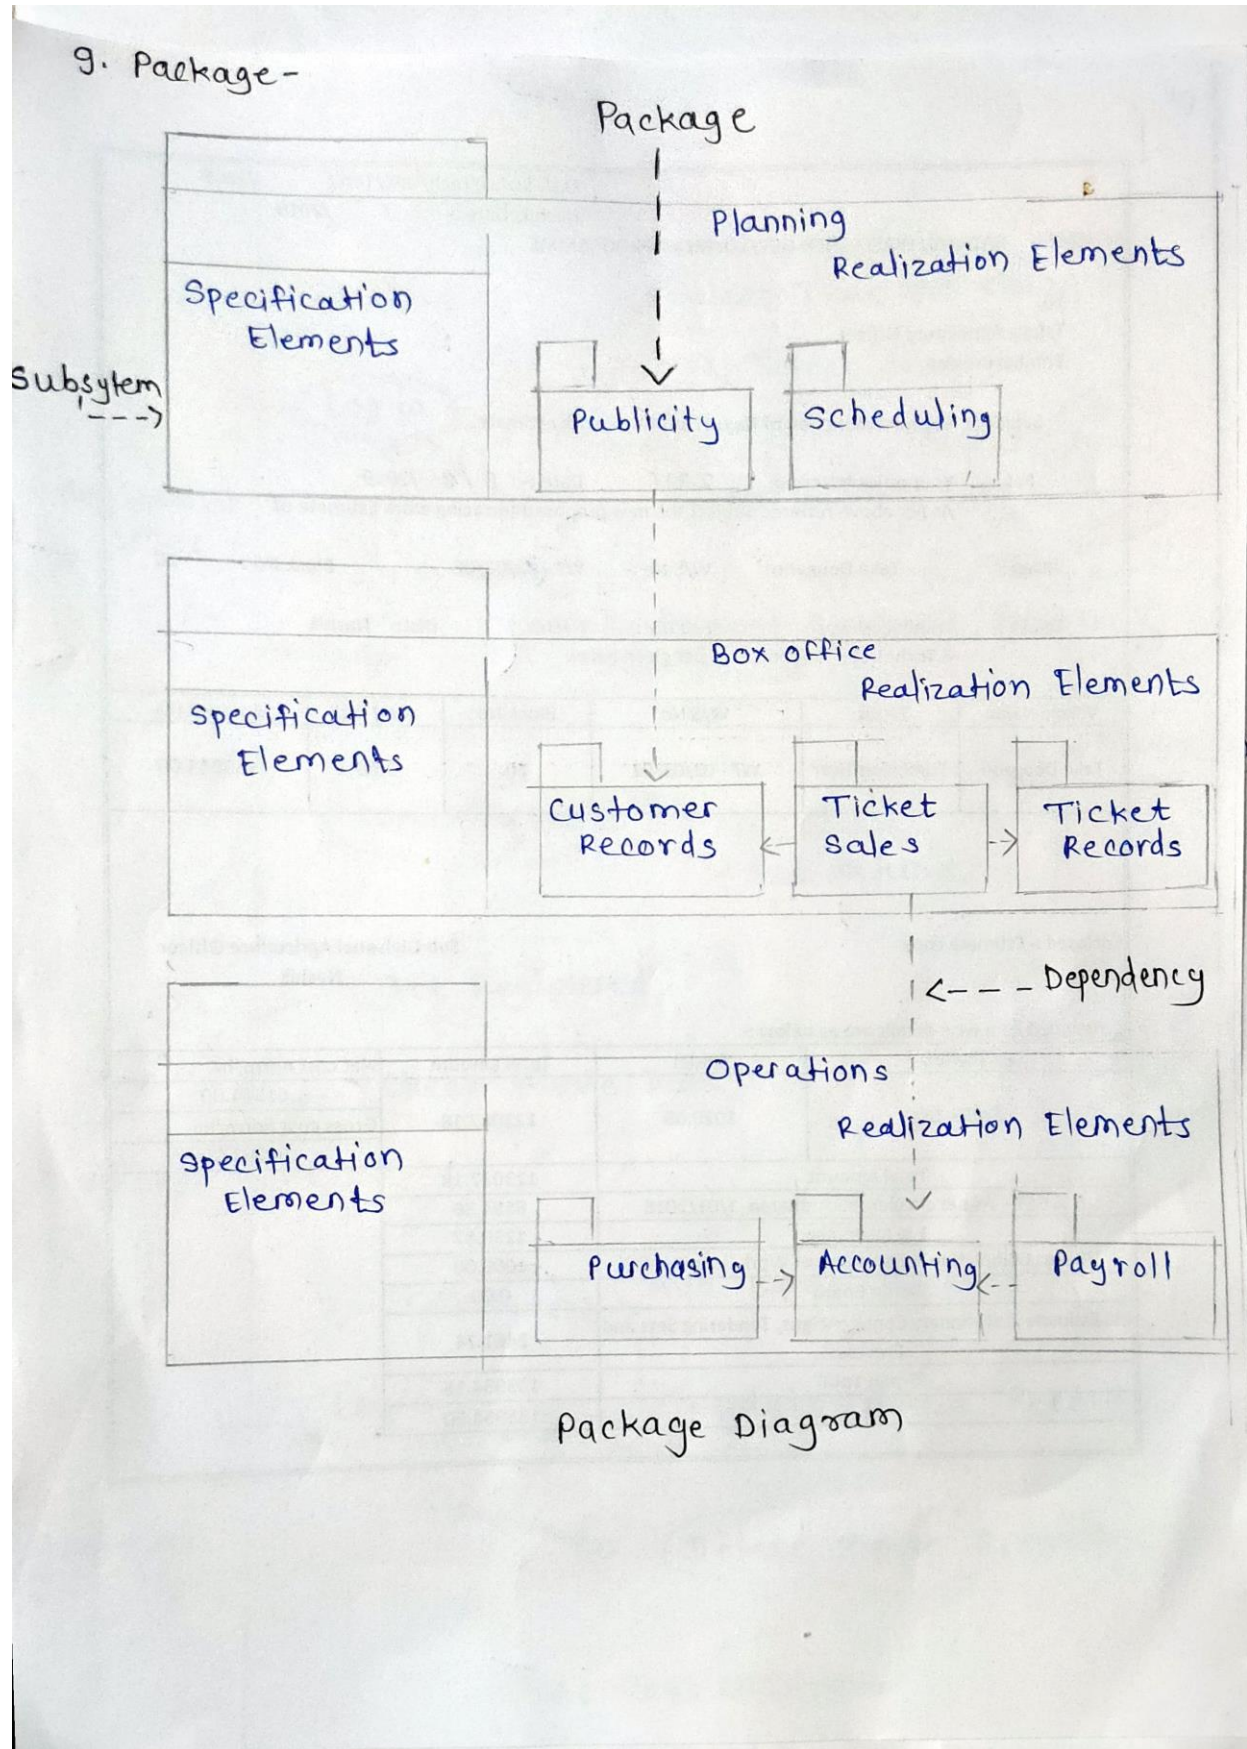 9. Package-
Package
Planning
Realization Elements
Specification
Elements
Subsytem
Publicity
Scheduling
Box office
Realization Elements
Specification
Elements
Customer
Records
Ticket
Sales
Ticket
Records
Dependency
Operations
Realization Elements
Specification
Elements
Purchasing
Accounting
Payroll
Package Diagram